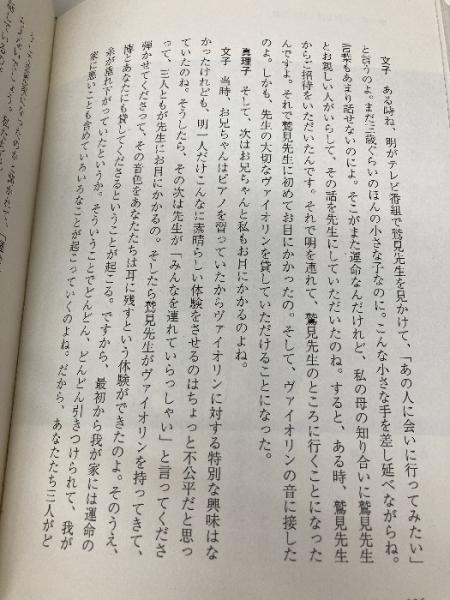 文子　ある時ね、明がテレビ番組で鷲見先生を見かけて、「あの人に会いに行ってみたい」
と言うのよ。まだ三歳ぐらいのほんの小さな子なのに。こんな小さな手を差し延べながらね。
言葉もあまり話せないのよ。そこがまた運命なんだけれど、私の母の知り合いに鷲見先生
とお親しい人がいらして、その話を先生にしていただいたのね。すると、ある時、鷲見先生
からご招待をいただいたんです。それで明を連れて、鷲見先生のところに行くことになった
んですよ。それで鷲見先生に初めてお目にかかったの。そして、ヴァイオリンの音に接した
のよ。しかも、先生の大切なヴァイオリンを貸していただけることになった。
真理子　そして、次はお兄ちゃんと私もお目にかかるのよね。
文子　当時、お兄ちゃんはピアノを習っていたからヴァイオリンに対する特別な興味はな
かったけれども、明一人だけこんなに素晴らしい体験をさせるのはちょっと不公平だと思っ
ていたのね。そうしたら、その次は先生が「みんなを連れていらっしゃい」と言ってくださ
って、三人ともが先生にお目にかかるの。そしたら鷲見先生がヴァイオリンを持ってきて、
弾かせてくださって、その音色をあなたたちは耳に残すという体験ができたのよ。そのうえ、
博とあなたにも貸してくださるということが起こる。ですから、最初から我が家には運命の
糸が垂れ下がっていたというか。そういうことでどんどん、どんどん引きつけられて、我が
家に悪いことも含めていろいろなことが起こっていくのよね。だから、あなたたち三人がど